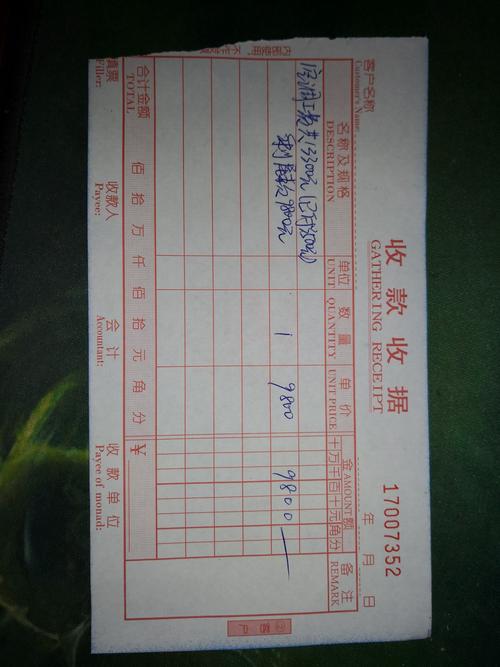 收款收据
GATHERING RECEIPT
17007352
客户名称
Customer's Name:
年 月 日
名称及规格
DESCRIPTION
单位
UNIT
数量
QUANTITY
单价
UNIT PRICE
金 AMOUNT 额
十万千百十元角分
备注
REMARK
空调工款共13300元(已付3500元)
剩余款9800元 1 9800 9800
合计金额
TOTAL
佰 拾 万 仟 佰 拾 元 角 分 ¥
填票
Filler:
收款人
Payee:
会计
Accountant:
收款单位
Payee of monad:
内部使用
② 客户